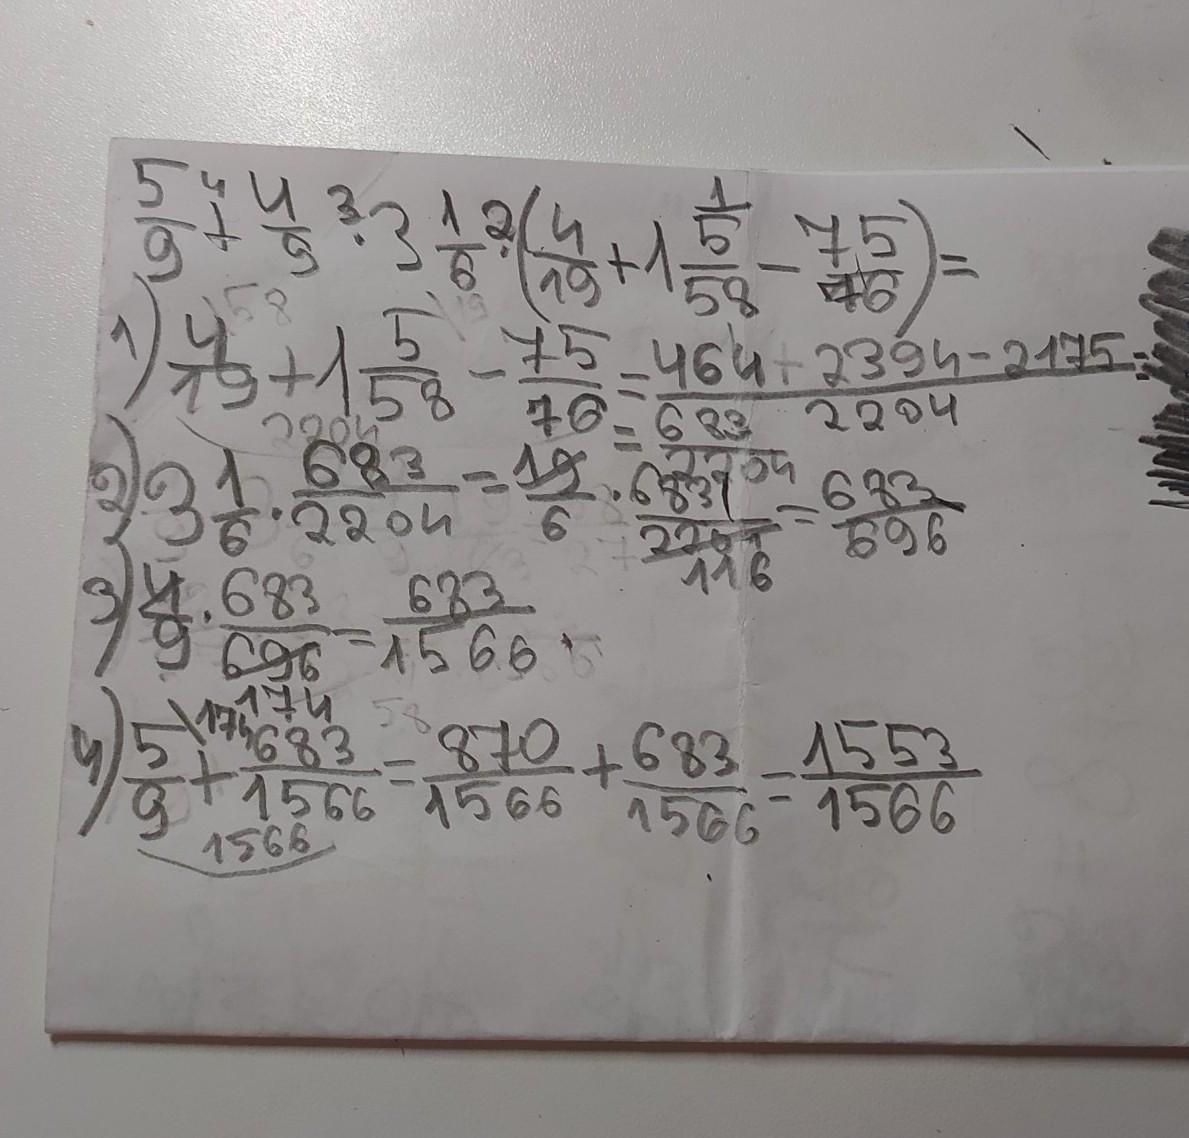 5/9 +⁴ 4/9 ·³ 3 1/6 ·² (4/19 +¹ 1 5/58 - 75/76) =
1) 4/19 \58 + 1 5/58 \19 - 75/76 = (464 + 2394 - 2175)/2204 =
2204 = 683/2204
2) 3 1/6 · 683/2204 = 19/6 · 683/2204 1 116 = 683/696
3) 4/9 · 683/696 174 = 683/1566
4) 5/9 \174 + 683/1566 = 870/1566 + 683/1566 = 1553/1566
1566